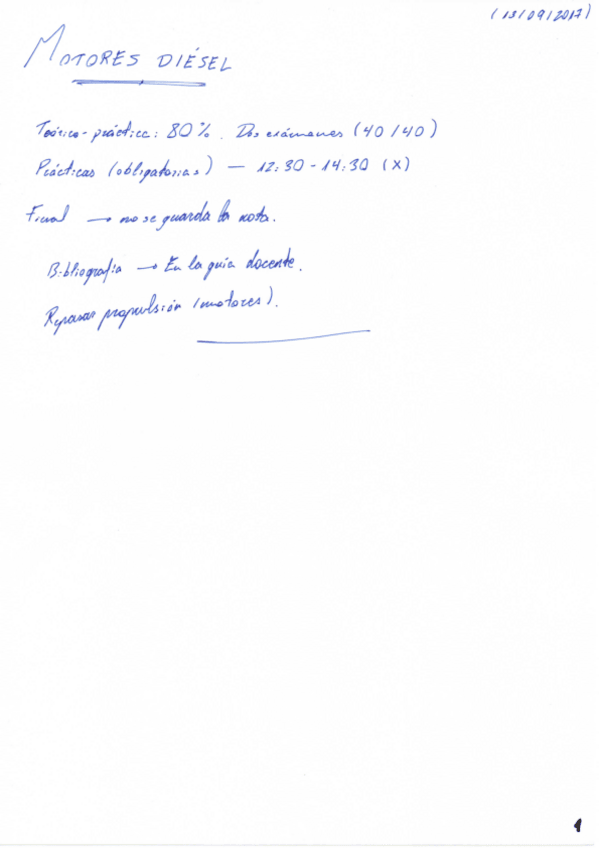 (13/09/2017)
MOTORES DIÉSEL
Teórico-práctica: 80%. Dos exámenes (40/40)
Prácticas (obligatorias) — 12:30 - 14:30 (X)
Final → no se guarda la nota.
Bibliografía → En la guía docente.
Repasar propulsión (motores).
1